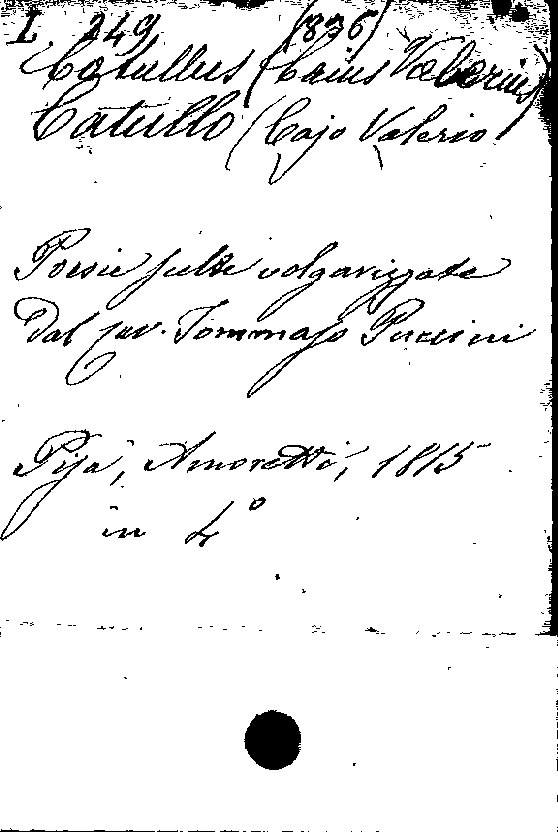 I 249 (836)
Catullus (Caius Valerius)
Catullo (Cajo Valerio
Poesie scelte volgarizzate
dal cav. Tommaso Puccini
Pisa, Amoretti, 1815
in 4°